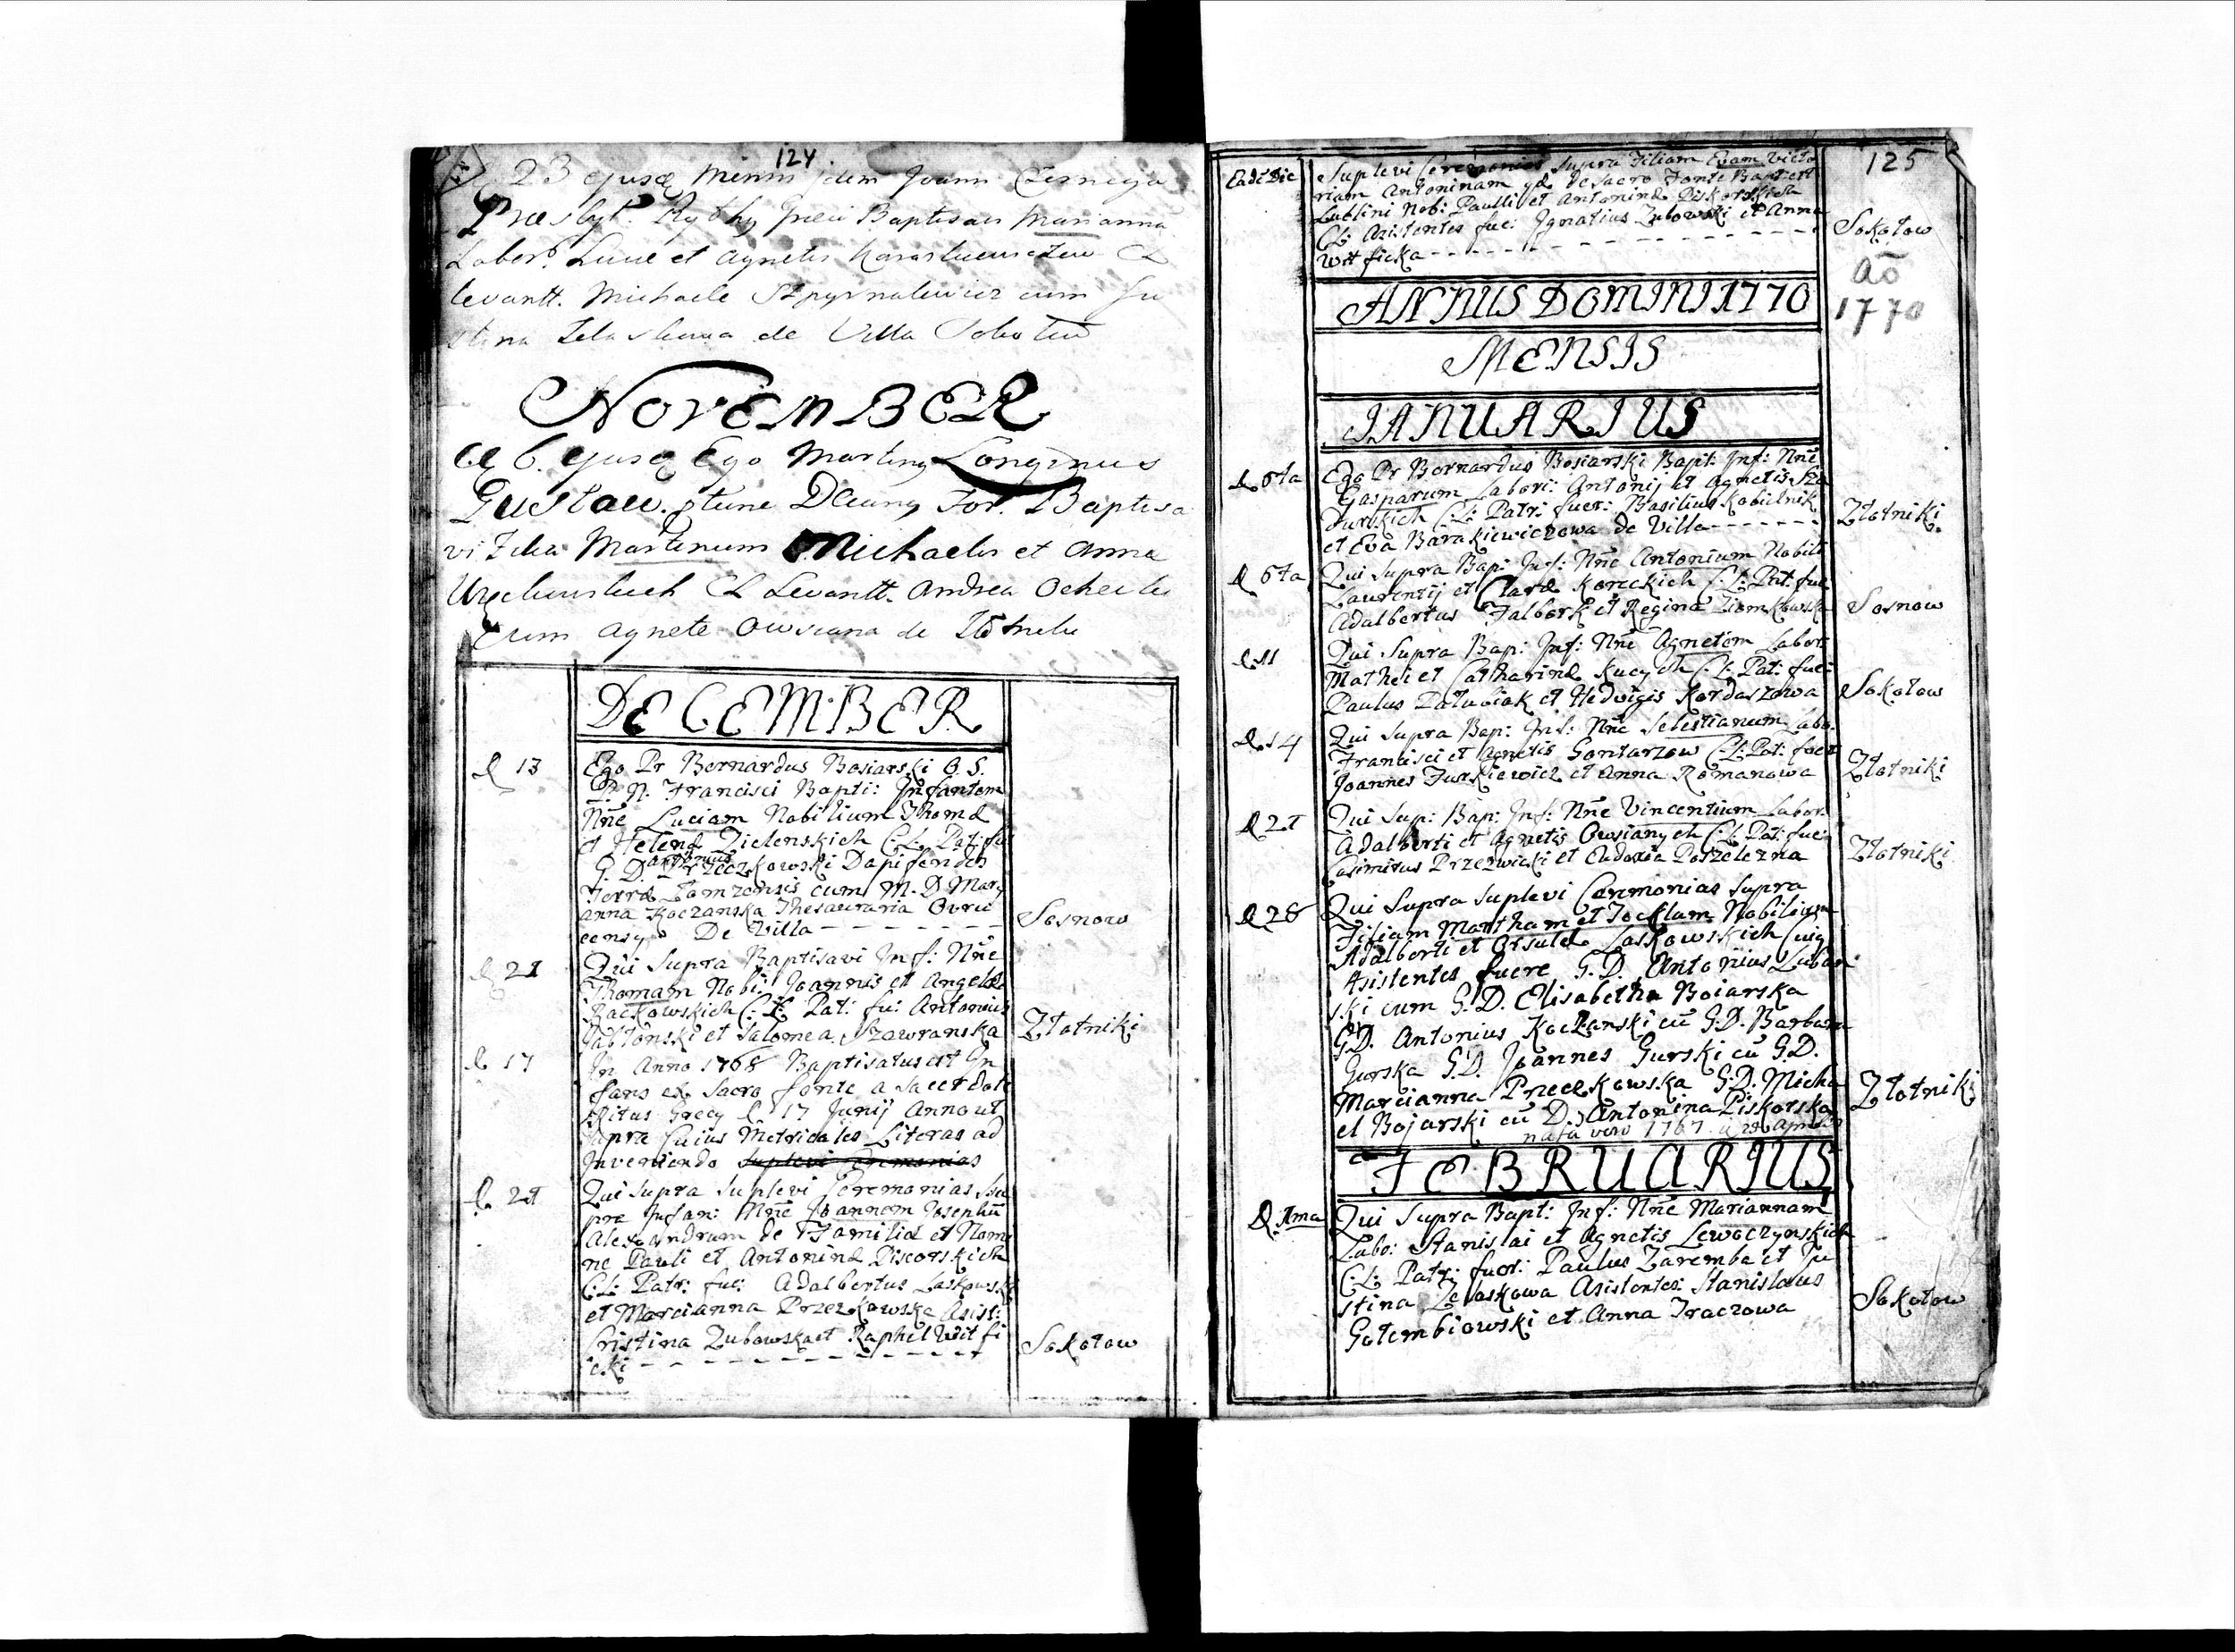 124.
23 ejusq Mensis idem Joann
Præsbyt. Ritûs Græci Baptisavi Mariannā
Labor. Lucæ et Agnetis
levantt. Michaele cum Ju
stina de Villa
NOVEMBER
d 6. ejusq Ego Martinq Longinus
Decanq For. Baptisa
vi Martinum Michaelis et Anna
CL Levantt. Andrea
cum Agnete Owsiana de
DECEMBER
d 13
Ego Pr Bernardus Bosiarski O. S.
P. N. Francisci Bapti: Infantem
Nñe Luciam Nobilium Thomæ
et Helenæ Zielenskich C. L. Pat: fu
G. D. Antonius Przeczkowski Dapifendes
Terræ Łomzensis cum M. D. Mary
anna Koczanska Thesauraria Ovru
censy De Villa - - - - - - -
Sosnow
d 21
Qui Supra Baptisavi Inf: Nñe
Thomam Nobi: Joannis et Angelæ
Rackowskich C: L: Pat: fu: Antonius
Jabłonski et Salomea Szawranska
Złotniki
d 17
In Anno 1768 Baptisatus est In
fans ex Sacro fonte a Sacerdote
Ritus Grecy d 17 Junij Anno ut
Supra Cuius Metricales Literas ad
Inveniendo Suplevi Ceremonias
d. 21
Qui Supra Suplevi Ceremonias Su
pra Infan: Nñe Joannem Josephū
Alexandrum de Familia et Nomi
ne Pauli et Antoninæ Piscorskich
C: L: Patr: fue: Adalbertus Laskowski
et Marcianna Przezkowska Asist:
Cristina Zubowska et Raphel Witfi
cki - - - - - - - - - - - -
Sokołow
125
Eadē Die
Suplevi Ceremonias Supra Filiam Evam Victo
riam Antoninam qd de Sacro Fonte Baptisat
Lublini Nob: Paulli et Antoninæ Piskorskich
C. L: Asistentes fue: Ignatius Zubowski et Anna
Witficka - - - - - - - - - - - -
Sokołow
Aō
1770
ANNUS DOMINI 1770
MENSIS
IANUARIUS
d 6ta
Ego Pr Bernardus Bosiarski Bapt: Inf: Nñe
Gasparum Labori: Antonij et Agnetis
Jurskich C: L: Patr: fuer: Basilius Kobulnik
et Eva Barakiewiczowa de Villa - - - - - - -
Złotniki
d 6ta
Qui Supra Bap: Inf: Nñe Antonium Nobili
Laurentij et Claræ Koreckich C: L: Pat: fue
Adalbertus Falbork et Regina Ziomkowska
Sosnow
d. 11
Qui Supra Bap: Inf: Nñe Agnetem Labor:
Mathei et Catharinæ Kucych C: L: Pat: fue:
Paulus Patusiak et Hedvigis Kordaszowa
Sokołow
d. 14
Qui Supra Bap: Inf: Nñe Selestianum Labo.
Francisci et Agnetis Gontarzow C: L: Pat: fuer
Joannes Jurkiewicz et Anna Romanowa
Złotniki
d 21
Qui Sup: Bap: Inf: Nñe Vincentium Labor:
Adalberti et Agnetis Owsianych C: L: Pat: fue:
Casimirus Przezwicki et Eudoxia Potzelezna
Złotniki
d 28
Qui Supra Suplevi Ceremonias Supra
Filiam Martham et Tecklam Nobilium
Adalberti et Orsulæ Laskowskich Cuiq
Asistentes fuere G. D. Antonius Luban
ski cum G. D. Elisabetha Boiarska
G. D. Antonius Koczanski cū G. D. Barbara
Gurska G. D. Joannes Gurski cū G. D.
Marcianna Preczkowska G. D. Micha
el Bojarski cū D. Antonina Piskorska
nata vero 1767 d 28 Aprilis
Złotniki
FEBRUARIUS
d 1ma
Qui Supra Bapt: Inf: Nñe Mariannam
Labo: Stanislai et Agnetis Lewoczynskich
C: L: Patr: fuer: Paulus Zaremba et Ju
stina Zelaskowa Asistentes: Stanislaus
Gołembiowski et Anna Traczowa
Sokołow